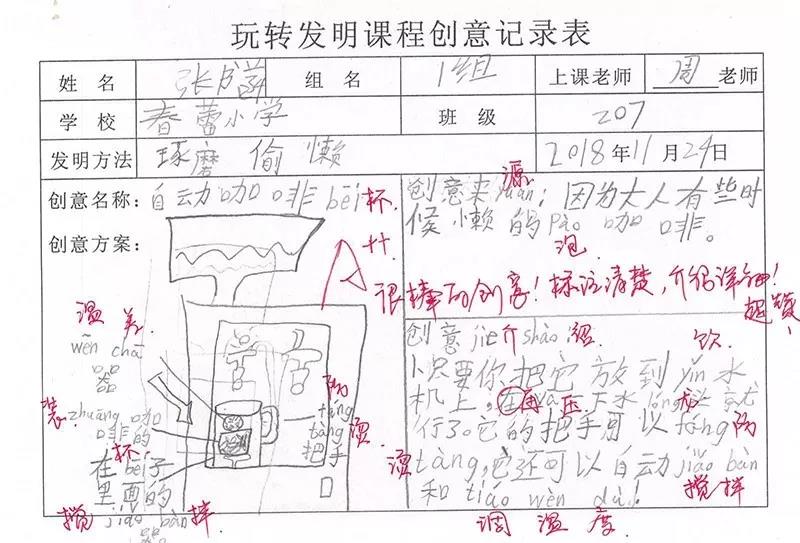 玩转发明课程创意记录表
姓名 张 组名 1组 上课老师 周 老师
学校 春蕾小学 班级 207
发明方法 琢磨 偷懒 2018年11月24日
创意名称：自动咖啡bēi 杯
创意方案：
创意来yuán：因为大人有些时
源
候懒的pào咖啡。
泡
A++
很棒的创意！标注清楚，介绍详细！
超赞！
温差
wēn chā
器
装
zhuāng咖
啡的
杯
在bēi子
里面的
搅 jiǎo bàn 拌
器
防
fáng
tàng 烫
把手
创意jiè shào：
介 绍
饮
只要你把它放到yǐn水
机上，在yā下水lóng头就
再 压
行了。它的把手可以fáng 防
烫
tàng，它还可以自动jiǎo bàn
搅拌
和tiáo wēn dù！
调 温度